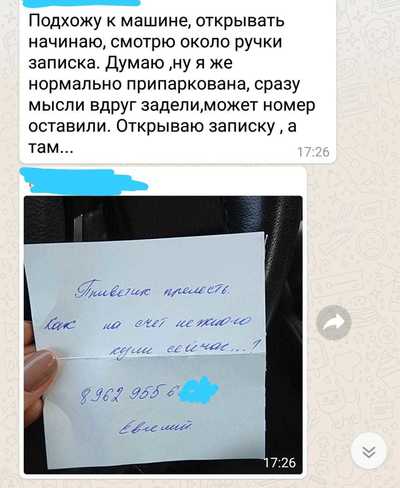 Подхожу к машине, открывать
начинаю, смотрю около ручки
записка. Думаю ,ну я же
нормально припаркована, сразу
мысли вдруг задели,может номер
оставили. Открываю записку , а
там...
17:26
Приветик прелесть.
Как на счет нежного
куни сейчас...?
8962 955 6
Евгений
17:26